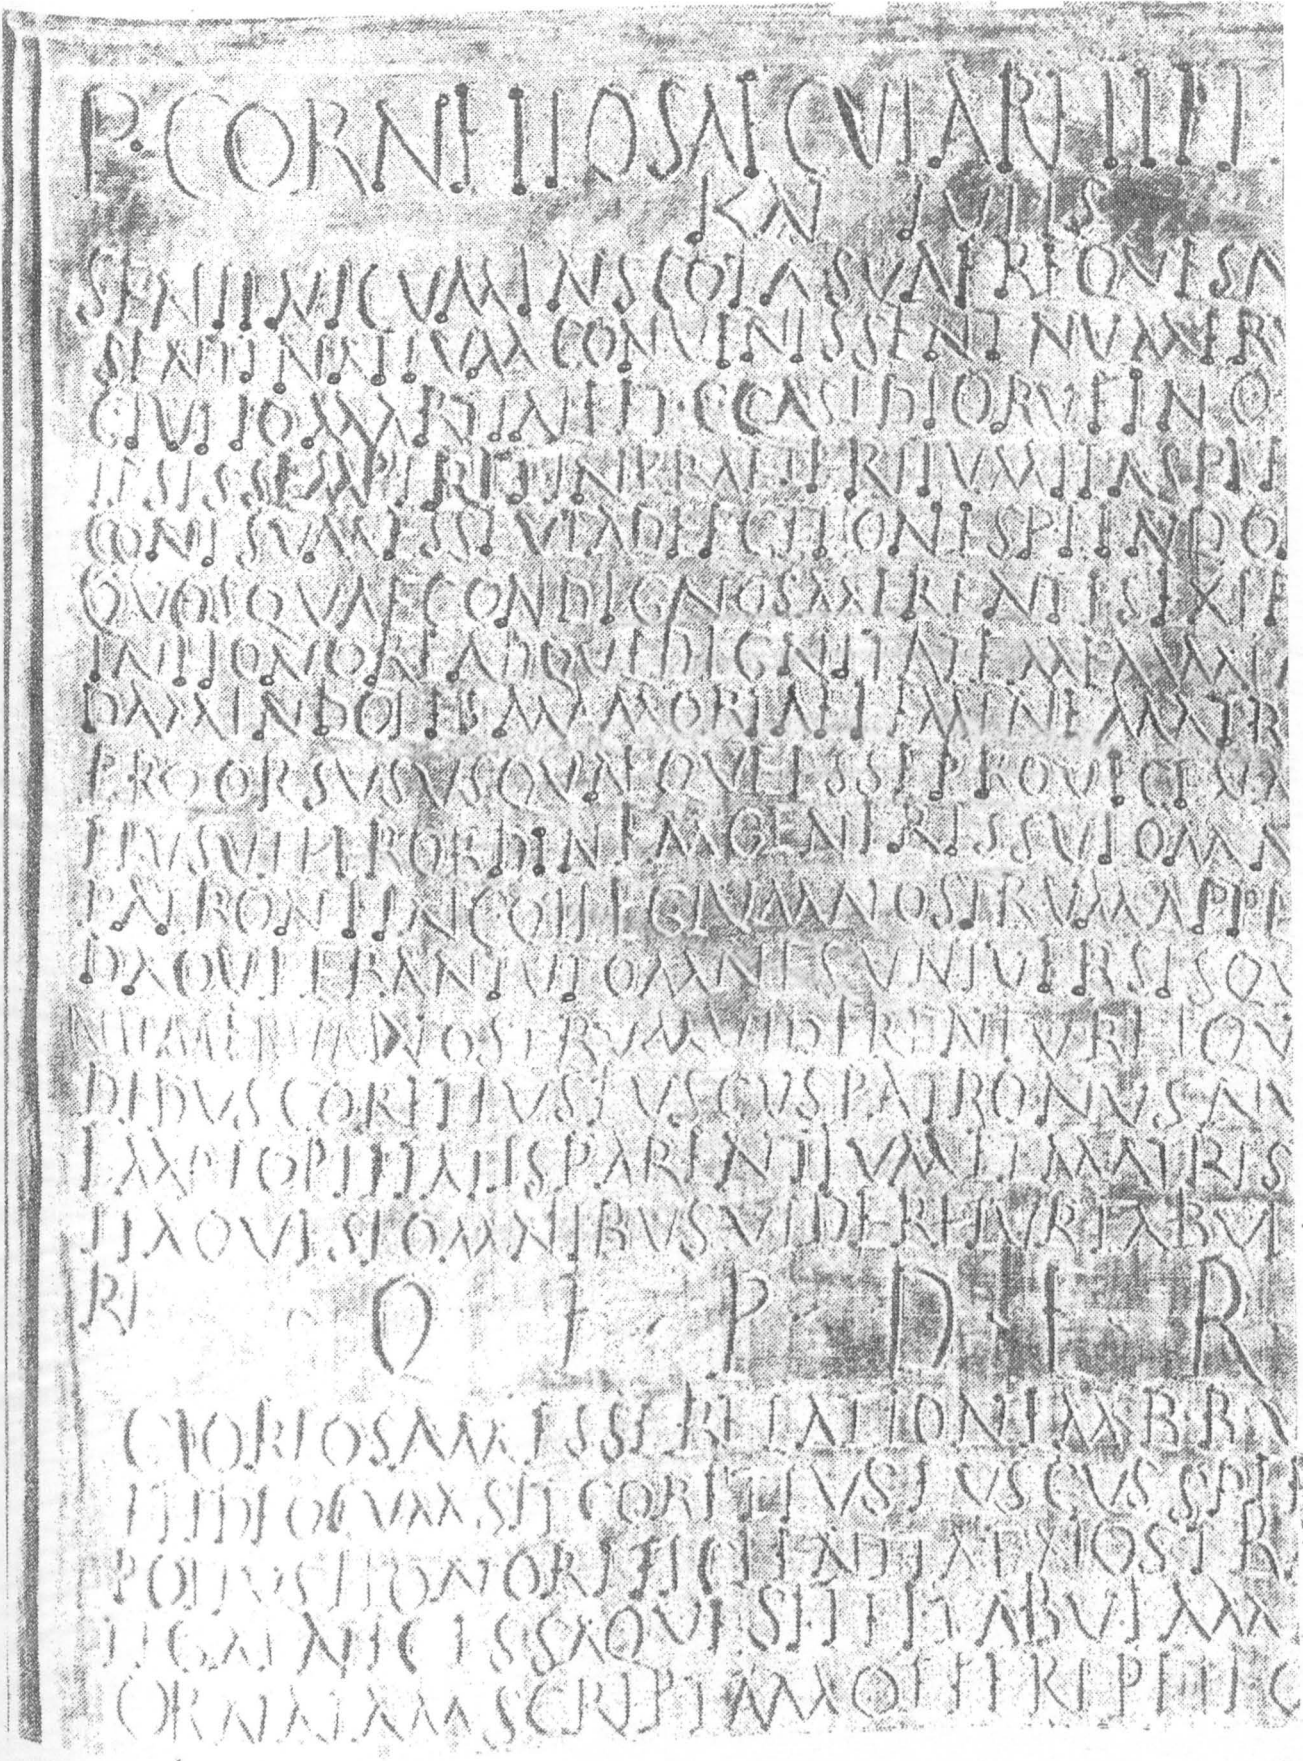 P·CORNELIO SAECVLARE II ET I
SENTINI CVM IN SCOLA SVA FREQVES N
SENTINATIVM CONVENISSENT NVMERV
C IVLIO MARTIALE ET C CASIDIO RVFINO Q
SEMPER ET IN PRAETERITVM ITA SPLE
CONI SVAE ESSE VT AD EFECTIONE SPLENDO
QVOSQVAE CONDIGNOS MERENTES EXTE
TATI HONORE ADQVE DIGNITATE MEMMIA
DAM INDOLIS MAMORIAE FEMINE MATR
PRO ORSVS VSQVAEQVE ESSE PROVECTVM
EIVS VT PER ORDINEM GENERIS SVI OMN
PATRONI IN COLLEGIVM NOSTRVM APPE
DAQVE ERANT VT OMNES VNIVERSISQV
NVMERVM NOSTRVM VIDERENTVR ET QV
DEDVS CORETIVS FVSCVS PATRONVS AM
EMPLO PIETATIS PARENTIVM ET MATRIS
ITAQVE SI OMNIBVS VIDERETVR TABVL
RI Q F P D E R
GLORIOSAM ESSE RELATIONEM B B V
ET IDEO CVM SIT CORETIVS FVSCVS SPLE
POTIVS HONORIFICENTIA
SIT ET TABVLAM
ORNATAM SCRIPTAM